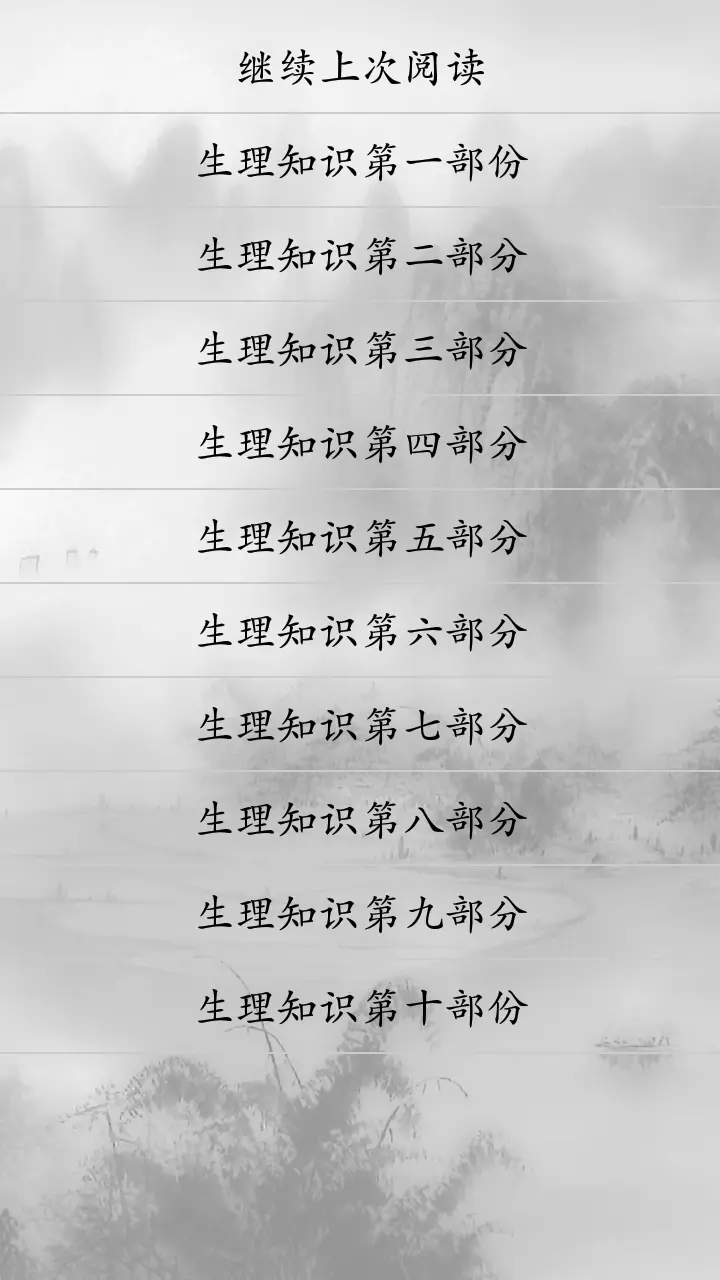 继续上次阅读
生理知识第一部份
生理知识第二部分
生理知识第三部分
生理知识第四部分
生理知识第五部分
生理知识第六部分
生理知识第七部分
生理知识第八部分
生理知识第九部分
生理知识第十部份